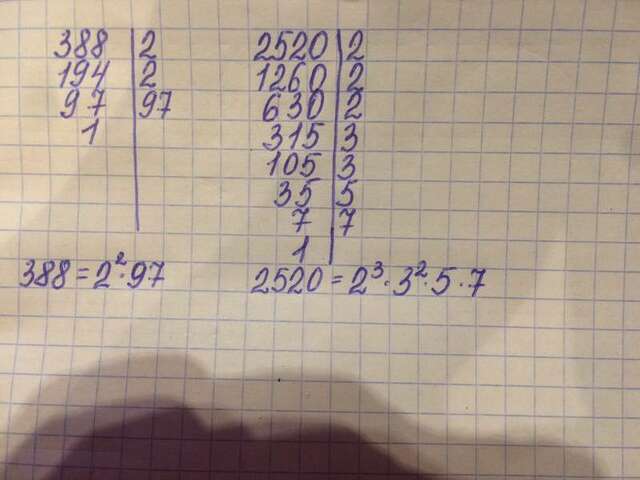 388 | 2
194 | 2
97 | 97
1 |
388 = 2² · 97
2520 | 2
1260 | 2
630 | 2
315 | 3
105 | 3
35 | 5
7 | 7
1 |
2520 = 2³ · 3² · 5 · 7